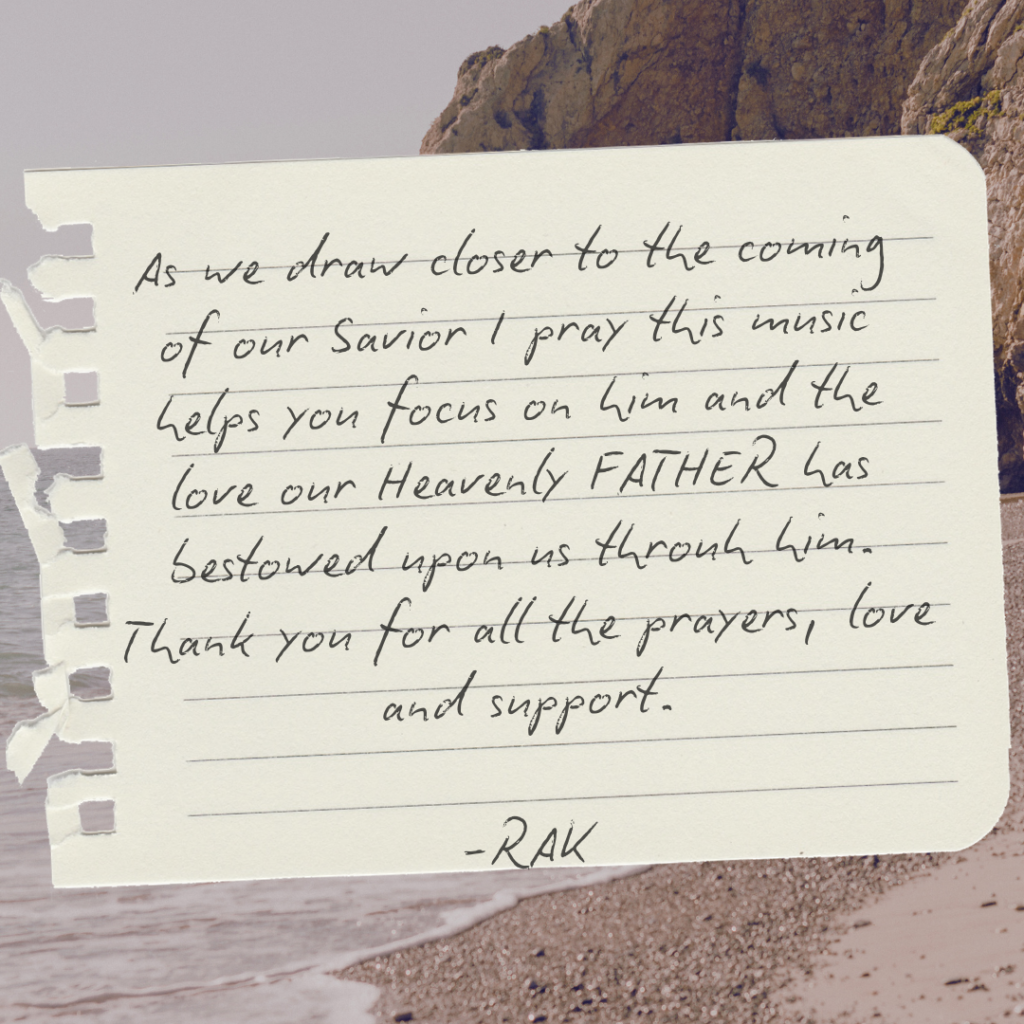 As we draw closer to the coming
of our Savior I pray this music
helps you focus on him and the
love our Heavenly FATHER has
bestowed upon us throuh him.
Thank you for all the prayers, love
and support.
-RAK